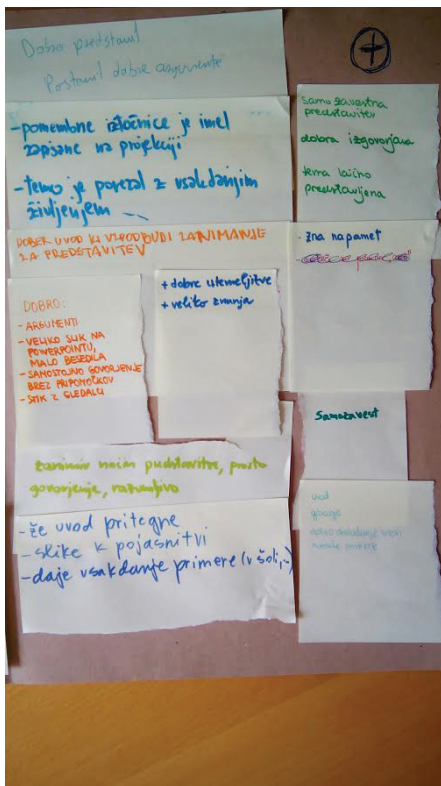 Dobro predstavil
Postavil dobre argumente
+
-pomembne iztočnice je imel
zapisane na projekciji
-temo je povezal z vsakdanjim
življenjem
samozavestna
predstavitev
dobra izgovorjava
tema
predstavljena
DOBER UVOD KI VZPODBUDI ZANIMANJE
ZA PREDSTAVITEV
- zna napamet
DOBRO:
- ARGUMENTI
- VELIKO SLIK NA
POWERPOINTU,
MALO BESEDILA
- SAMOSTOJNO GOVORJENJE
BREZ PRIPOMOČKOV
- STIK Z GLEDALCI
+ dobre utemeljitve
+ veliko znanja
Samozavest
zanimiv način predstavitve, prosto
govorjenje, razumljivo
- že uvod pritegne
- slike k pojasnitvi
- daje vsakdanje primere (v šoli,..)
uvod